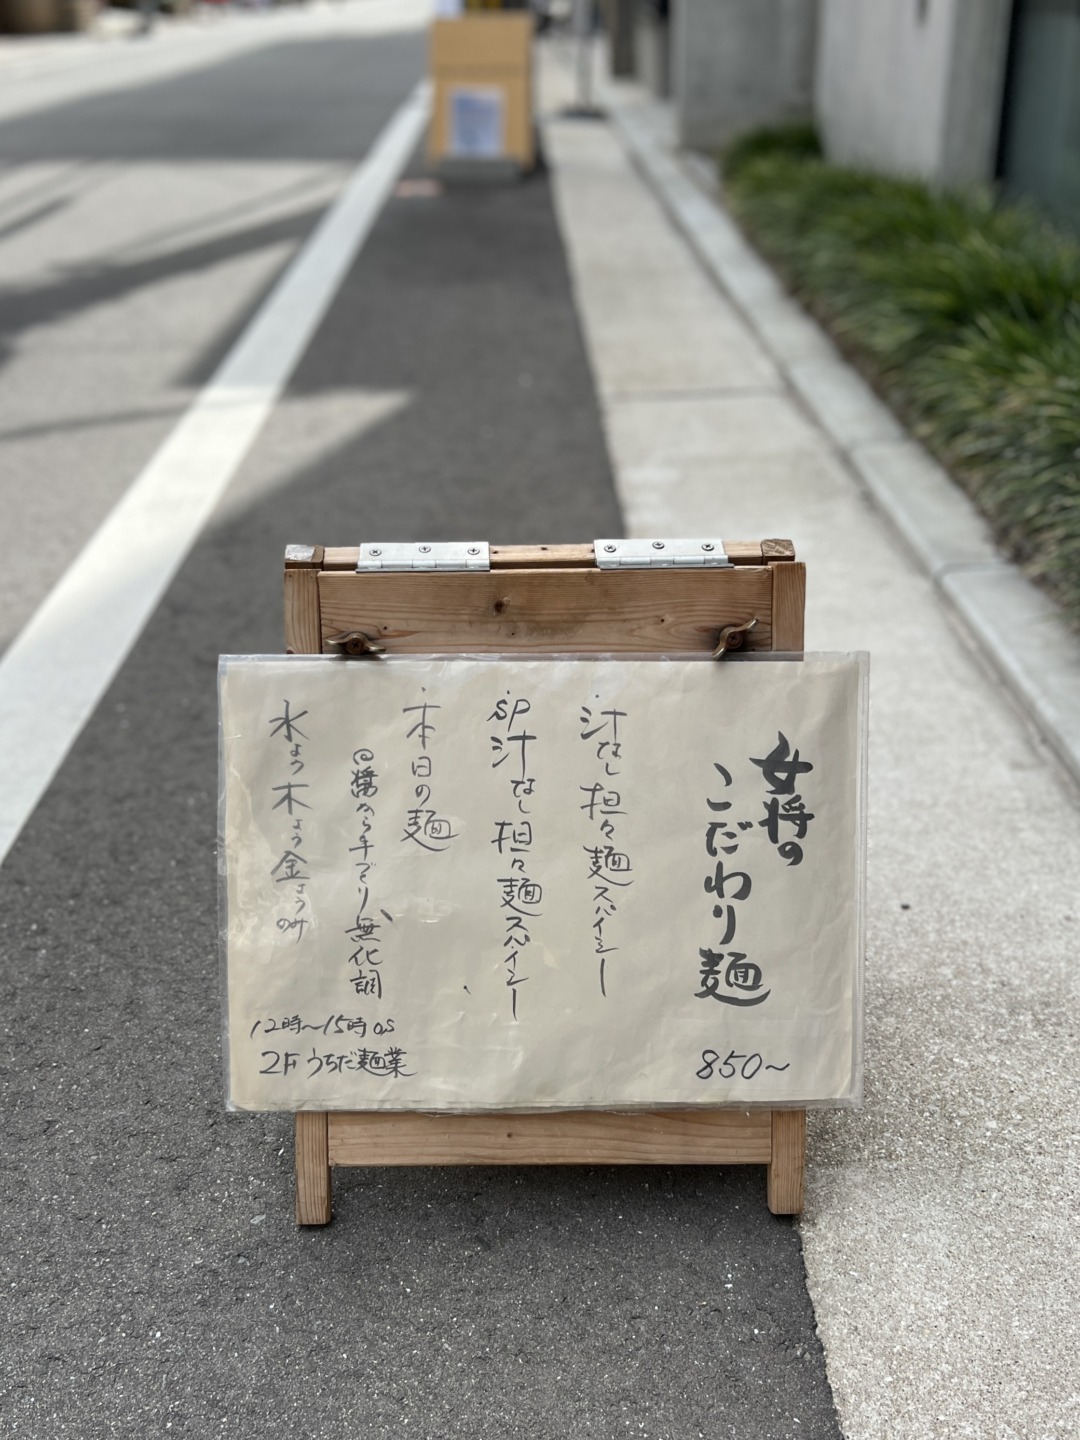 女将の
こだわり麺
850〜
・汁なし担々麺スパイシー
・SP汁なし担々麺スパイシー
・本日の麺
◎醤から手づくり、無化調
水よう木よう金ようのみ
12時〜15時os
2F うちだ麺業